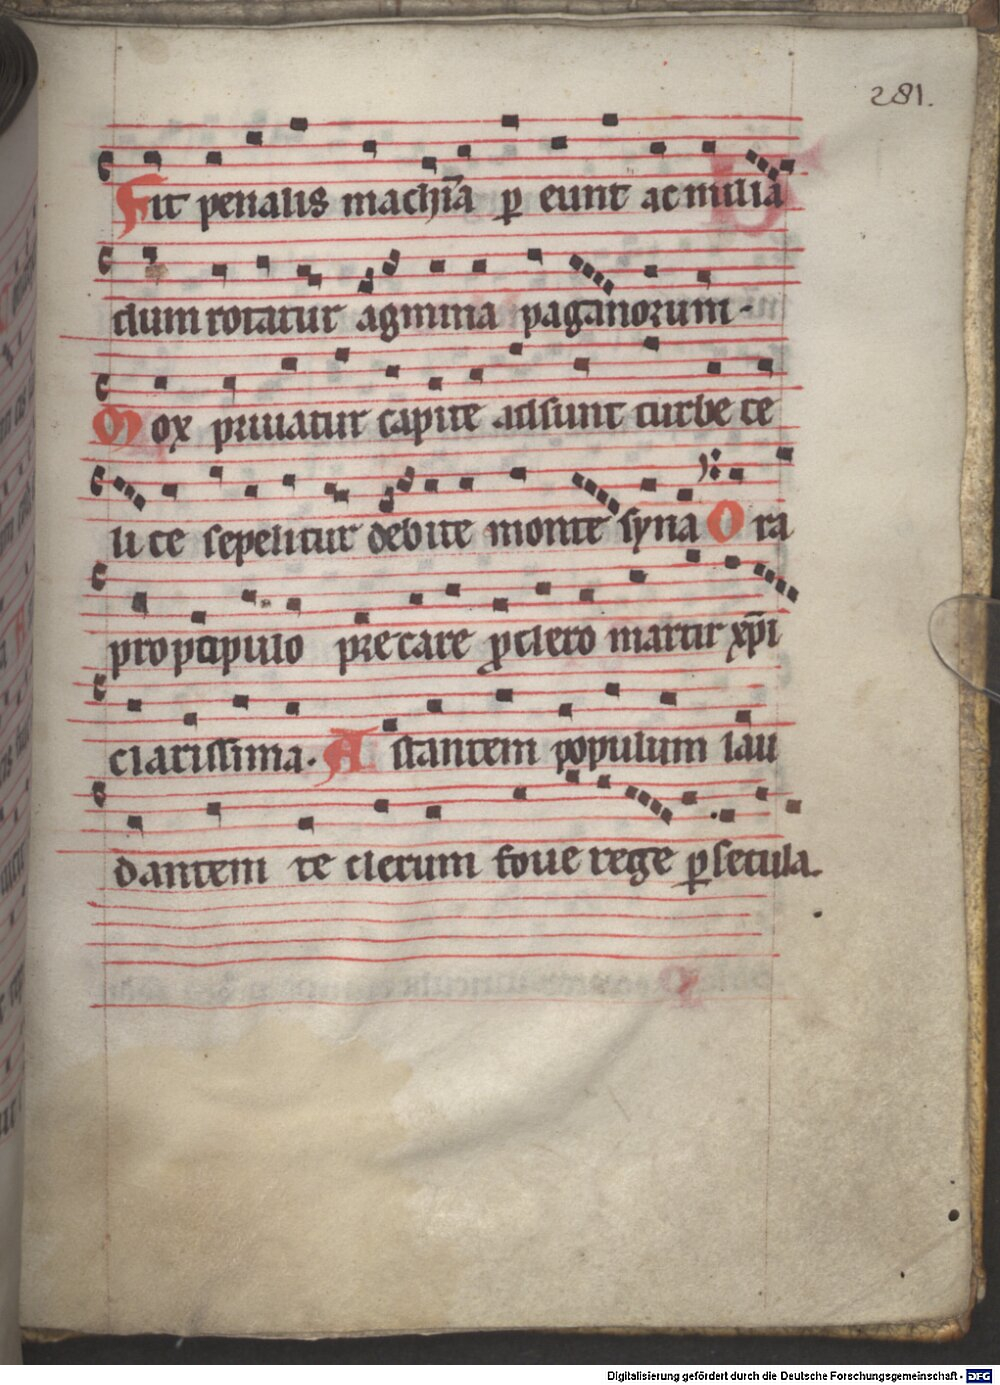 281.
Fit penalis machīa ꝑ eunt ac milia
dum rotatur agmina paganorum.
Mox priuatur capite adsunt turbe ce
li te sepelitur debite monte syna Ora
pro populo precare ꝓ clero martir xp̄i
clarissima. Astantem populum lau
dantem te clerum foue rege ꝑ secula.
Digitalisierung gefördert durch die Deutsche Forschungsgemeinschaft - DFG